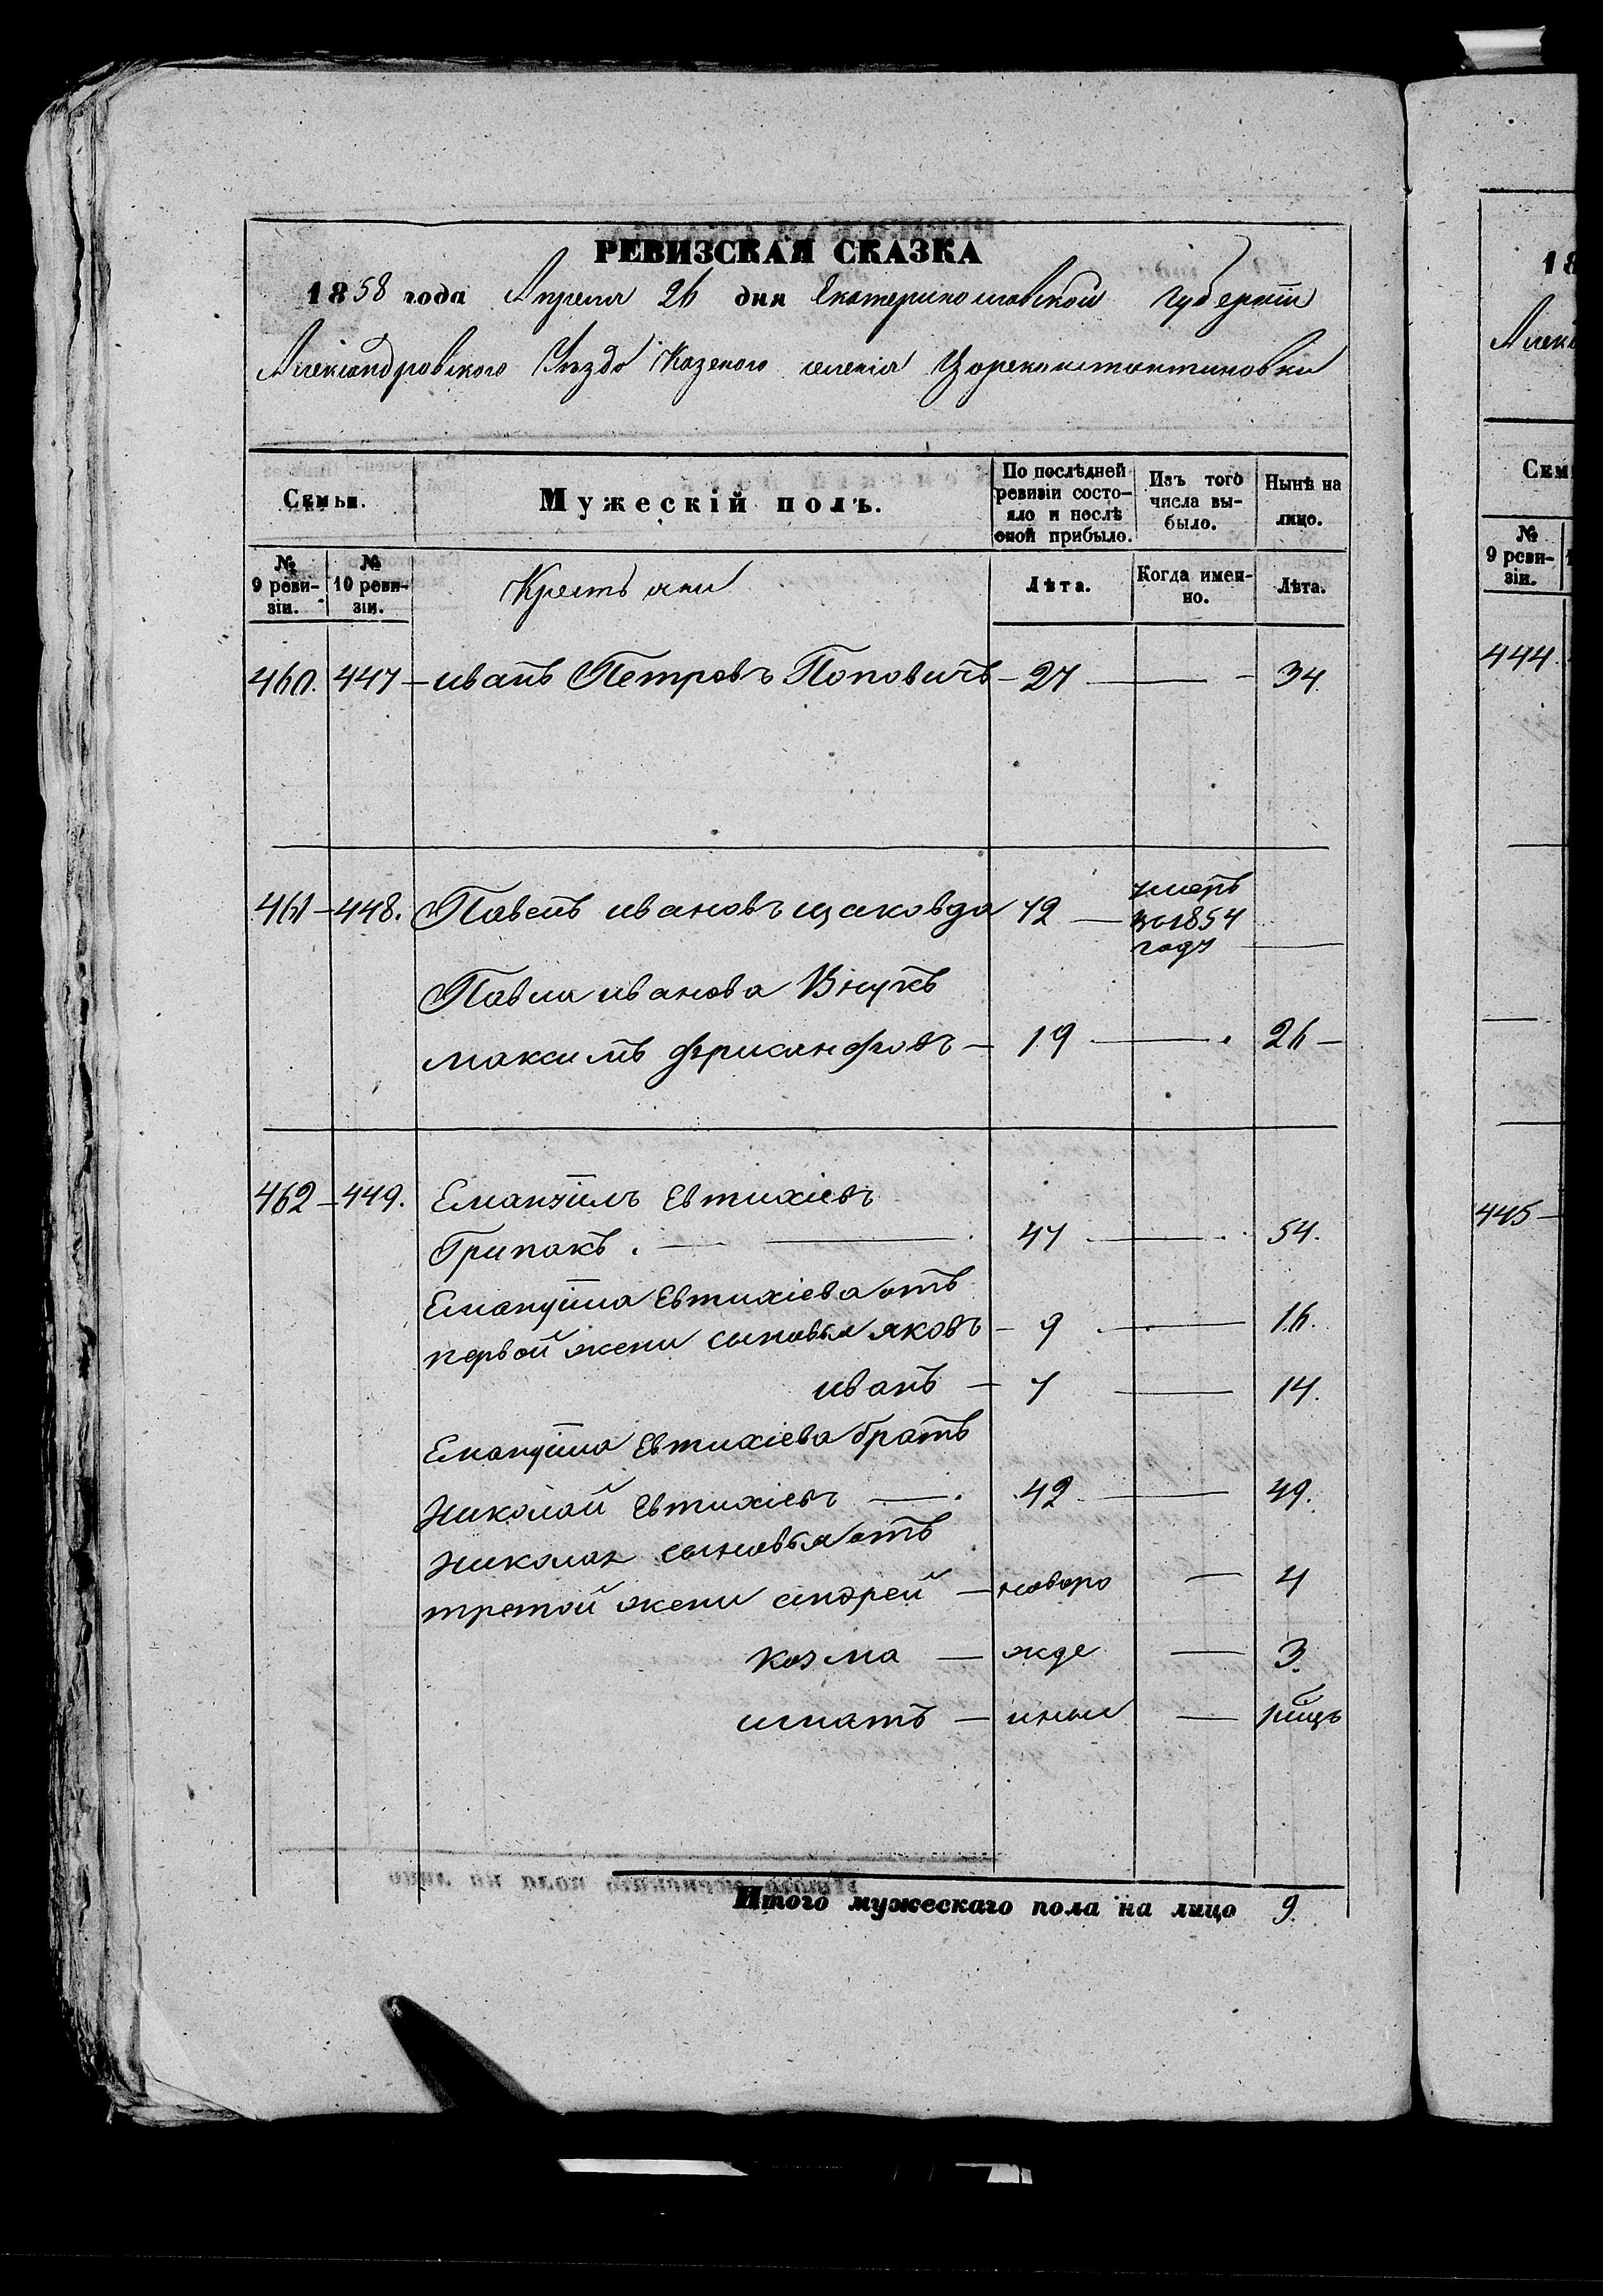 РЕВИЗСКАЯ СКАЗКА
1858 года Апреля 26 дня Екатеринославской губернiи
Александровского Уѣзда Казеного селенiя Цареконстантиновки
Семьи. Мужескiй полъ. По послѣдней ревизiи состояло и послѣ оной прибыло. Изъ того числа выбыло. Нынѣ на лицо.
№ 9 ревизiи. № 10 ревизiи. Крестьяни Лѣта. Когда именно. Лѣта.
460. 447 — иванъ Петровъ Поповичъ — 27 — 34
461 — 448. Павелъ ивановъ 72 — умеръ
во 1854
году —
Павла иванова Внукъ
максимъ — 19 — 26 —
462 — 449. Емануилъ Евтихiевъ
Грипакъ. — 47 — 54.
Емануила Евтихiева отъ
первой жени сыновья яковъ — 9 — 16.
иванъ — 7 — 14.
Емануила Евтихiева братъ
николай Евтихiевъ — 42 — 49.
николая сыновья отъ
третой жени андрей — новоро — 4
козма — жде — 3.
игнатъ — ныи — 1 мцъ
Итого мужескаго пола на лицо 9.
18
Алекс
Сем
№ 9 ревизiи.
444.
445 —